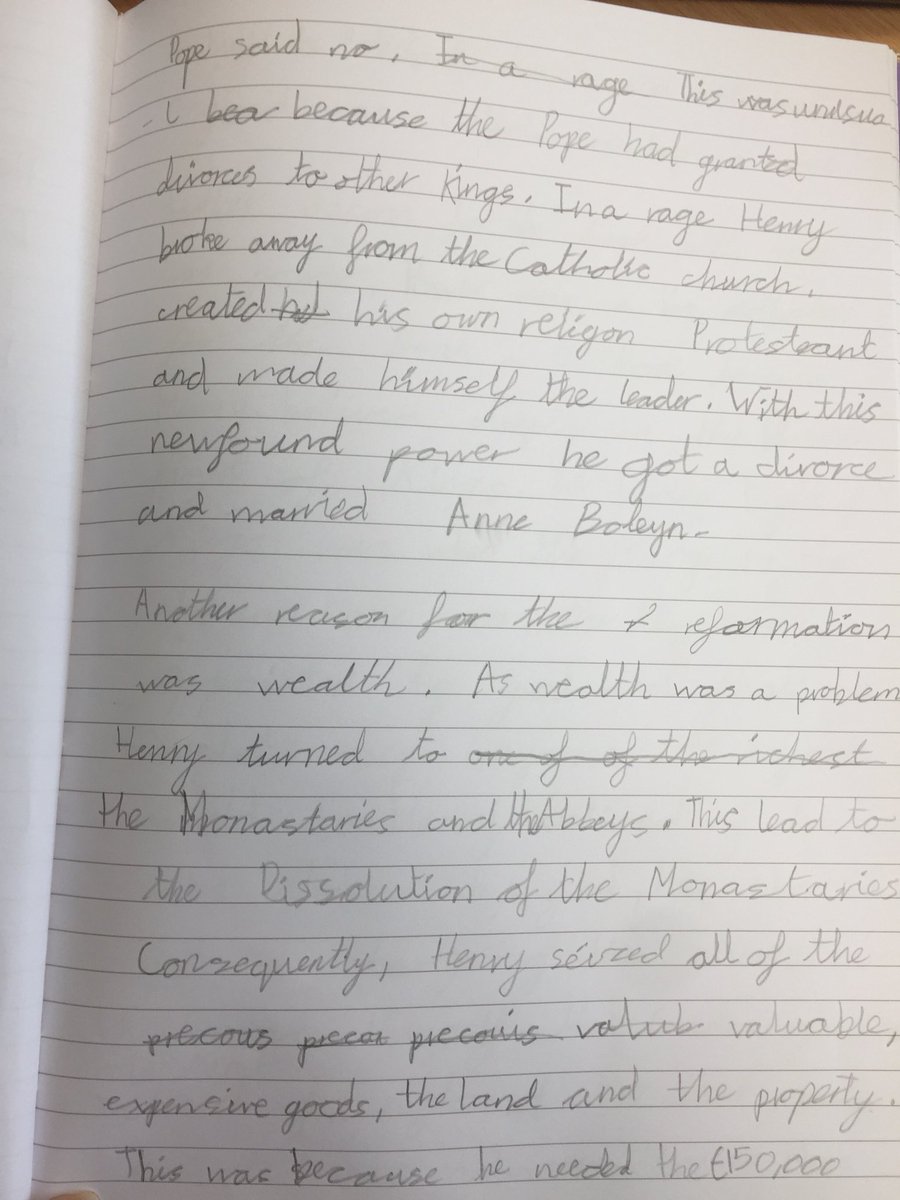 Pope said no. In a rage This was undsua
-l bea because the Pope had granted
divorces to other Kings. In a rage Henry
broke away from the Catholic church.
created hid his own religon Protesteant
and made himself the leader. With this
newfound power he got a divorce
and married Anne Boleyn.
Another reason for the r reformation
was wealth. As wealth was a problem
Henry turned to one of of the richest
the Monastaries and the Abbeys. This lead to
the Dissolution of the Monastaries
Consequently, Henry seized all of the
precous precor precouis valub valuable,
expensive goods, the land and the property.
This was because he needed the £150,000